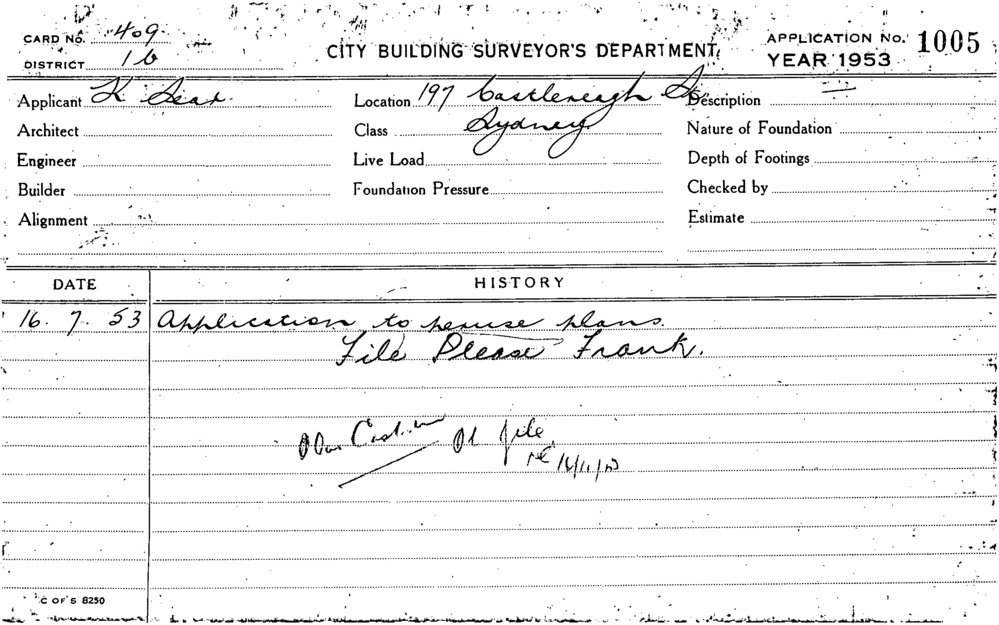 CARD No. 409
DISTRICT 16
CITY BUILDING SURVEYOR'S DEPARTMENT.
APPLICATION No. 1005
YEAR 1953
Applicant K
Location 197 Castlereagh St
Sydney
Description
Architect
Class
Nature of Foundation
Engineer
Live Load
Depth of Footings
Builder
Foundation Pressure
Checked by
Alignment
Estimate
DATE
HISTORY
16. 7. 53 Application to peruse plans.
File Please Frank.
Pl file.
C OF S 8250